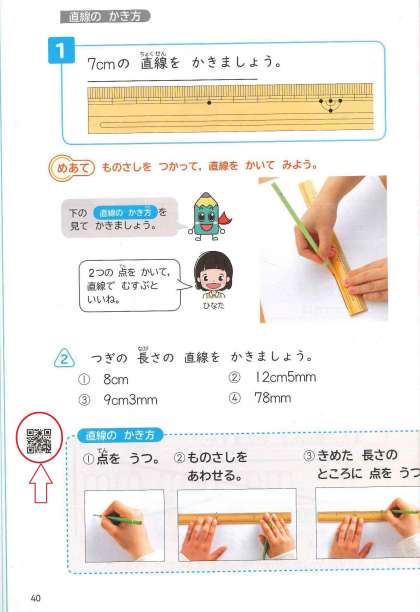 直線の かき方
1
ちょくせん
7cmの 直線を かきましょう。
めあて ものさしを つかって，直線を かいて みよう。
下の 直線の かき方 を
見て かきましょう。
2つの 点を かいて，
直線で むすぶと
いいね。
ひなた
なが
2 つぎの 長さの 直線を かきましょう。
① 8cm ② 12cm5mm
③ 9cm3mm ④ 78mm
直線の かき方
てん
①点を うつ。 ②ものさしを ③きめた 長さの
あわせる。 ところに 点を うつ
40